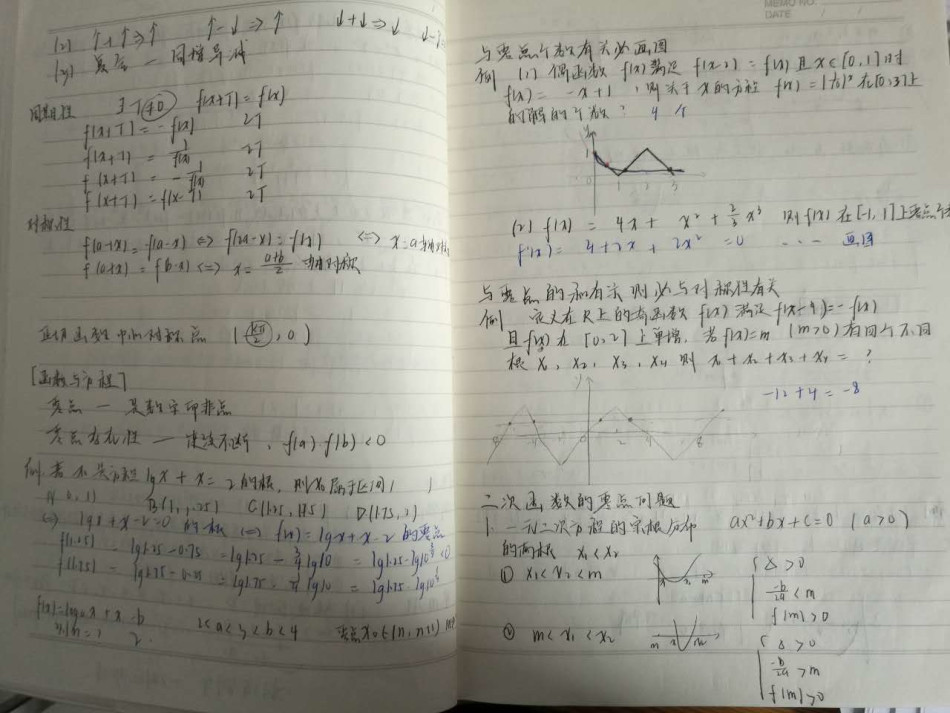 (2) ↑+↑⇒↑ ↑-↓⇒↑ ↓+↓⇒↓ ↓-
(3) 复合 — 同增异减
周期性 f(x+T)=f(x)
f(x+T)=-f(x) 2T
f(x+T)=1/f(x) 2T
f(x+T)=-1/f(x) 2T
f(x+T)=f(x-T) 2T
对称性
f(a+x)=f(a-x) ⇔ f(2a-x)=f(x) ⇔ x=a
f(a+x)=f(b-x) ⇔ x=(a+b)/2 轴对称
正切函数中心对称点 (kπ/2,0)
[函数与方程]
零点 — 是数字印非点
零点存在性 — 连续不断, f(a)f(b)<0
例 若 x₀ 是方程 lgx+x=2 的根, 则x₀属于区间( )
A(0,1) B(1,1.25) C(1.25,1.75) D(1.75,2)
⇔ lgx+x-2=0 的根 ⇔ f(x)=lgx+x-2 的零点
f(1.25)=lg1.25-0.75=lg1.25-3/4 lg10=
f(1.75)=lg1.75-0.25=lg1.75-1/4 lg10=
2<a<3<b<4 零点x₀∈(n,n+1)
MEMO NO.
DATE
与零点个数有关必画图
例 (1) 偶函数 f(x) 满足 f(x-1)=f(x) 且 x∈[0,1]时
f(x)=-x+1, 则关于x的方程 在[0,3]上
的解的个数? 4个
0 1 2 3
(2) f(x)=4x+x²+2/3x³ 则f(x)在[-1,1]上零点个
f'(x)=4+2x+2x²=0 --- 画图
与零点的和有关则必与对称性有关
例 定义在R上的奇函数 f(x) 满足 f(x-4)=-f(x)
且f(x)在[0,2]上单增, 若f(x)=m (m>0) 有四个不同
根 x₁, x₂, x₃, x₄ 则 x₁+x₂+x₃+x₄=?
-12+4=-8
二次函数的零点问题
1. 一元二次方程的实根分布 ax²+bx+c=0 (a>0)
的两根 x₁<x₂
① x₁<x₂<m
Δ>0
-b/2a<m
f(m)>0
② m<x₁<x₂
Δ>0
-b/2a>m
f(m)>0